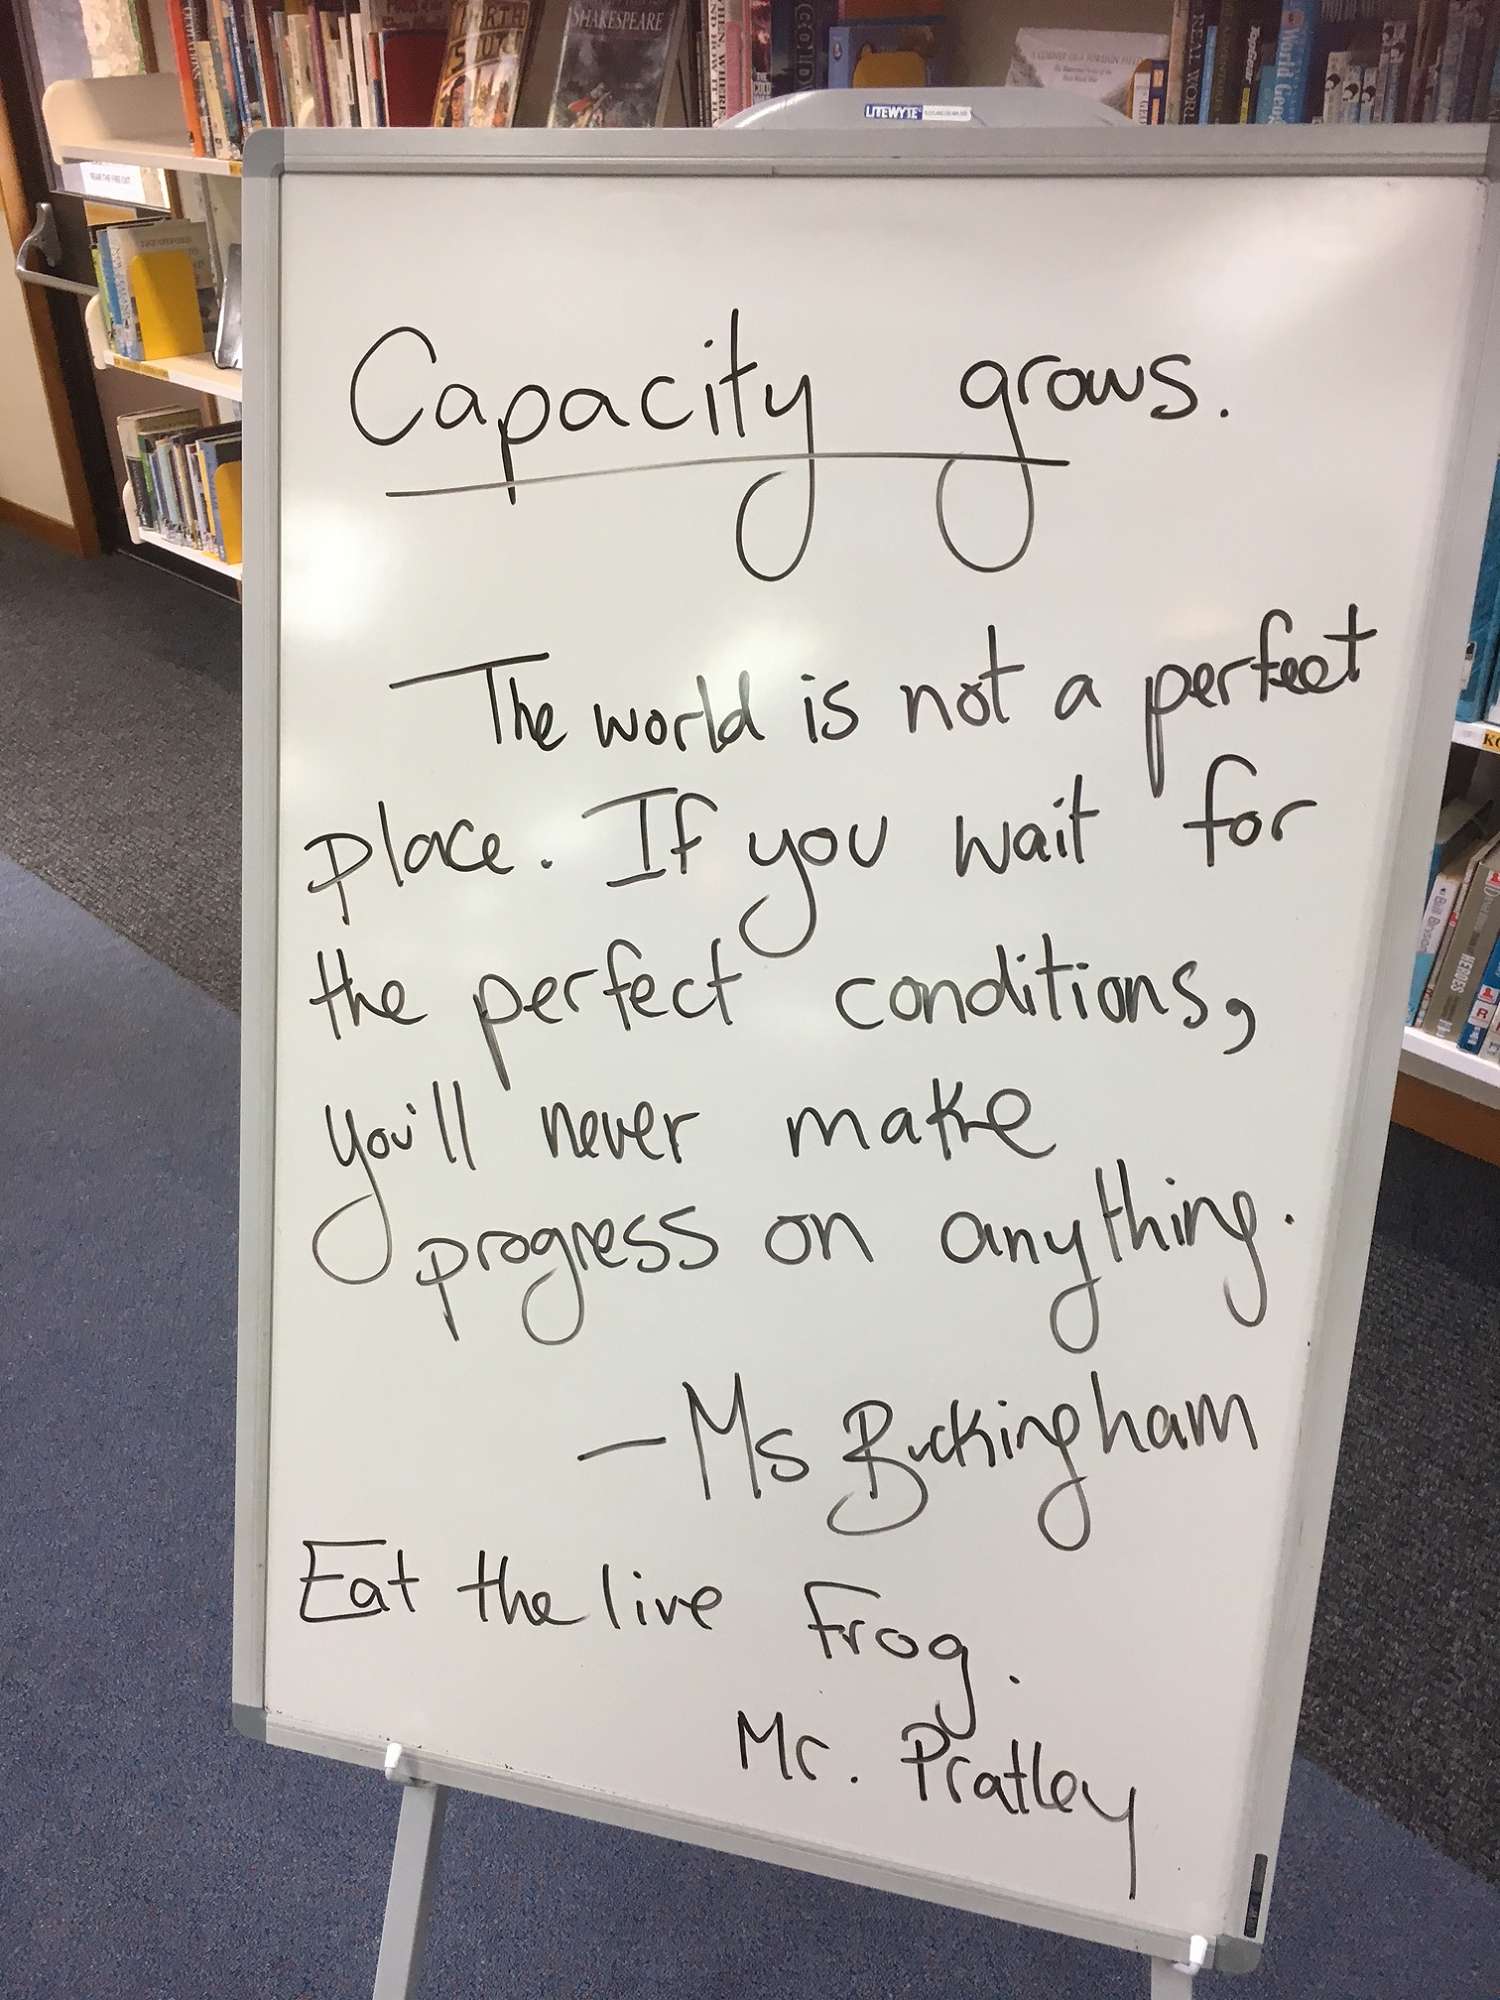 SHAKESPEARE
LITEWYTE
Capacity grows.
The world is not a perfect
place. If you wait for
the perfect conditions,
you'll never make
progress on anything.
— Ms Buckingham
Eat the live frog.
Mr. Pratley
HEROES